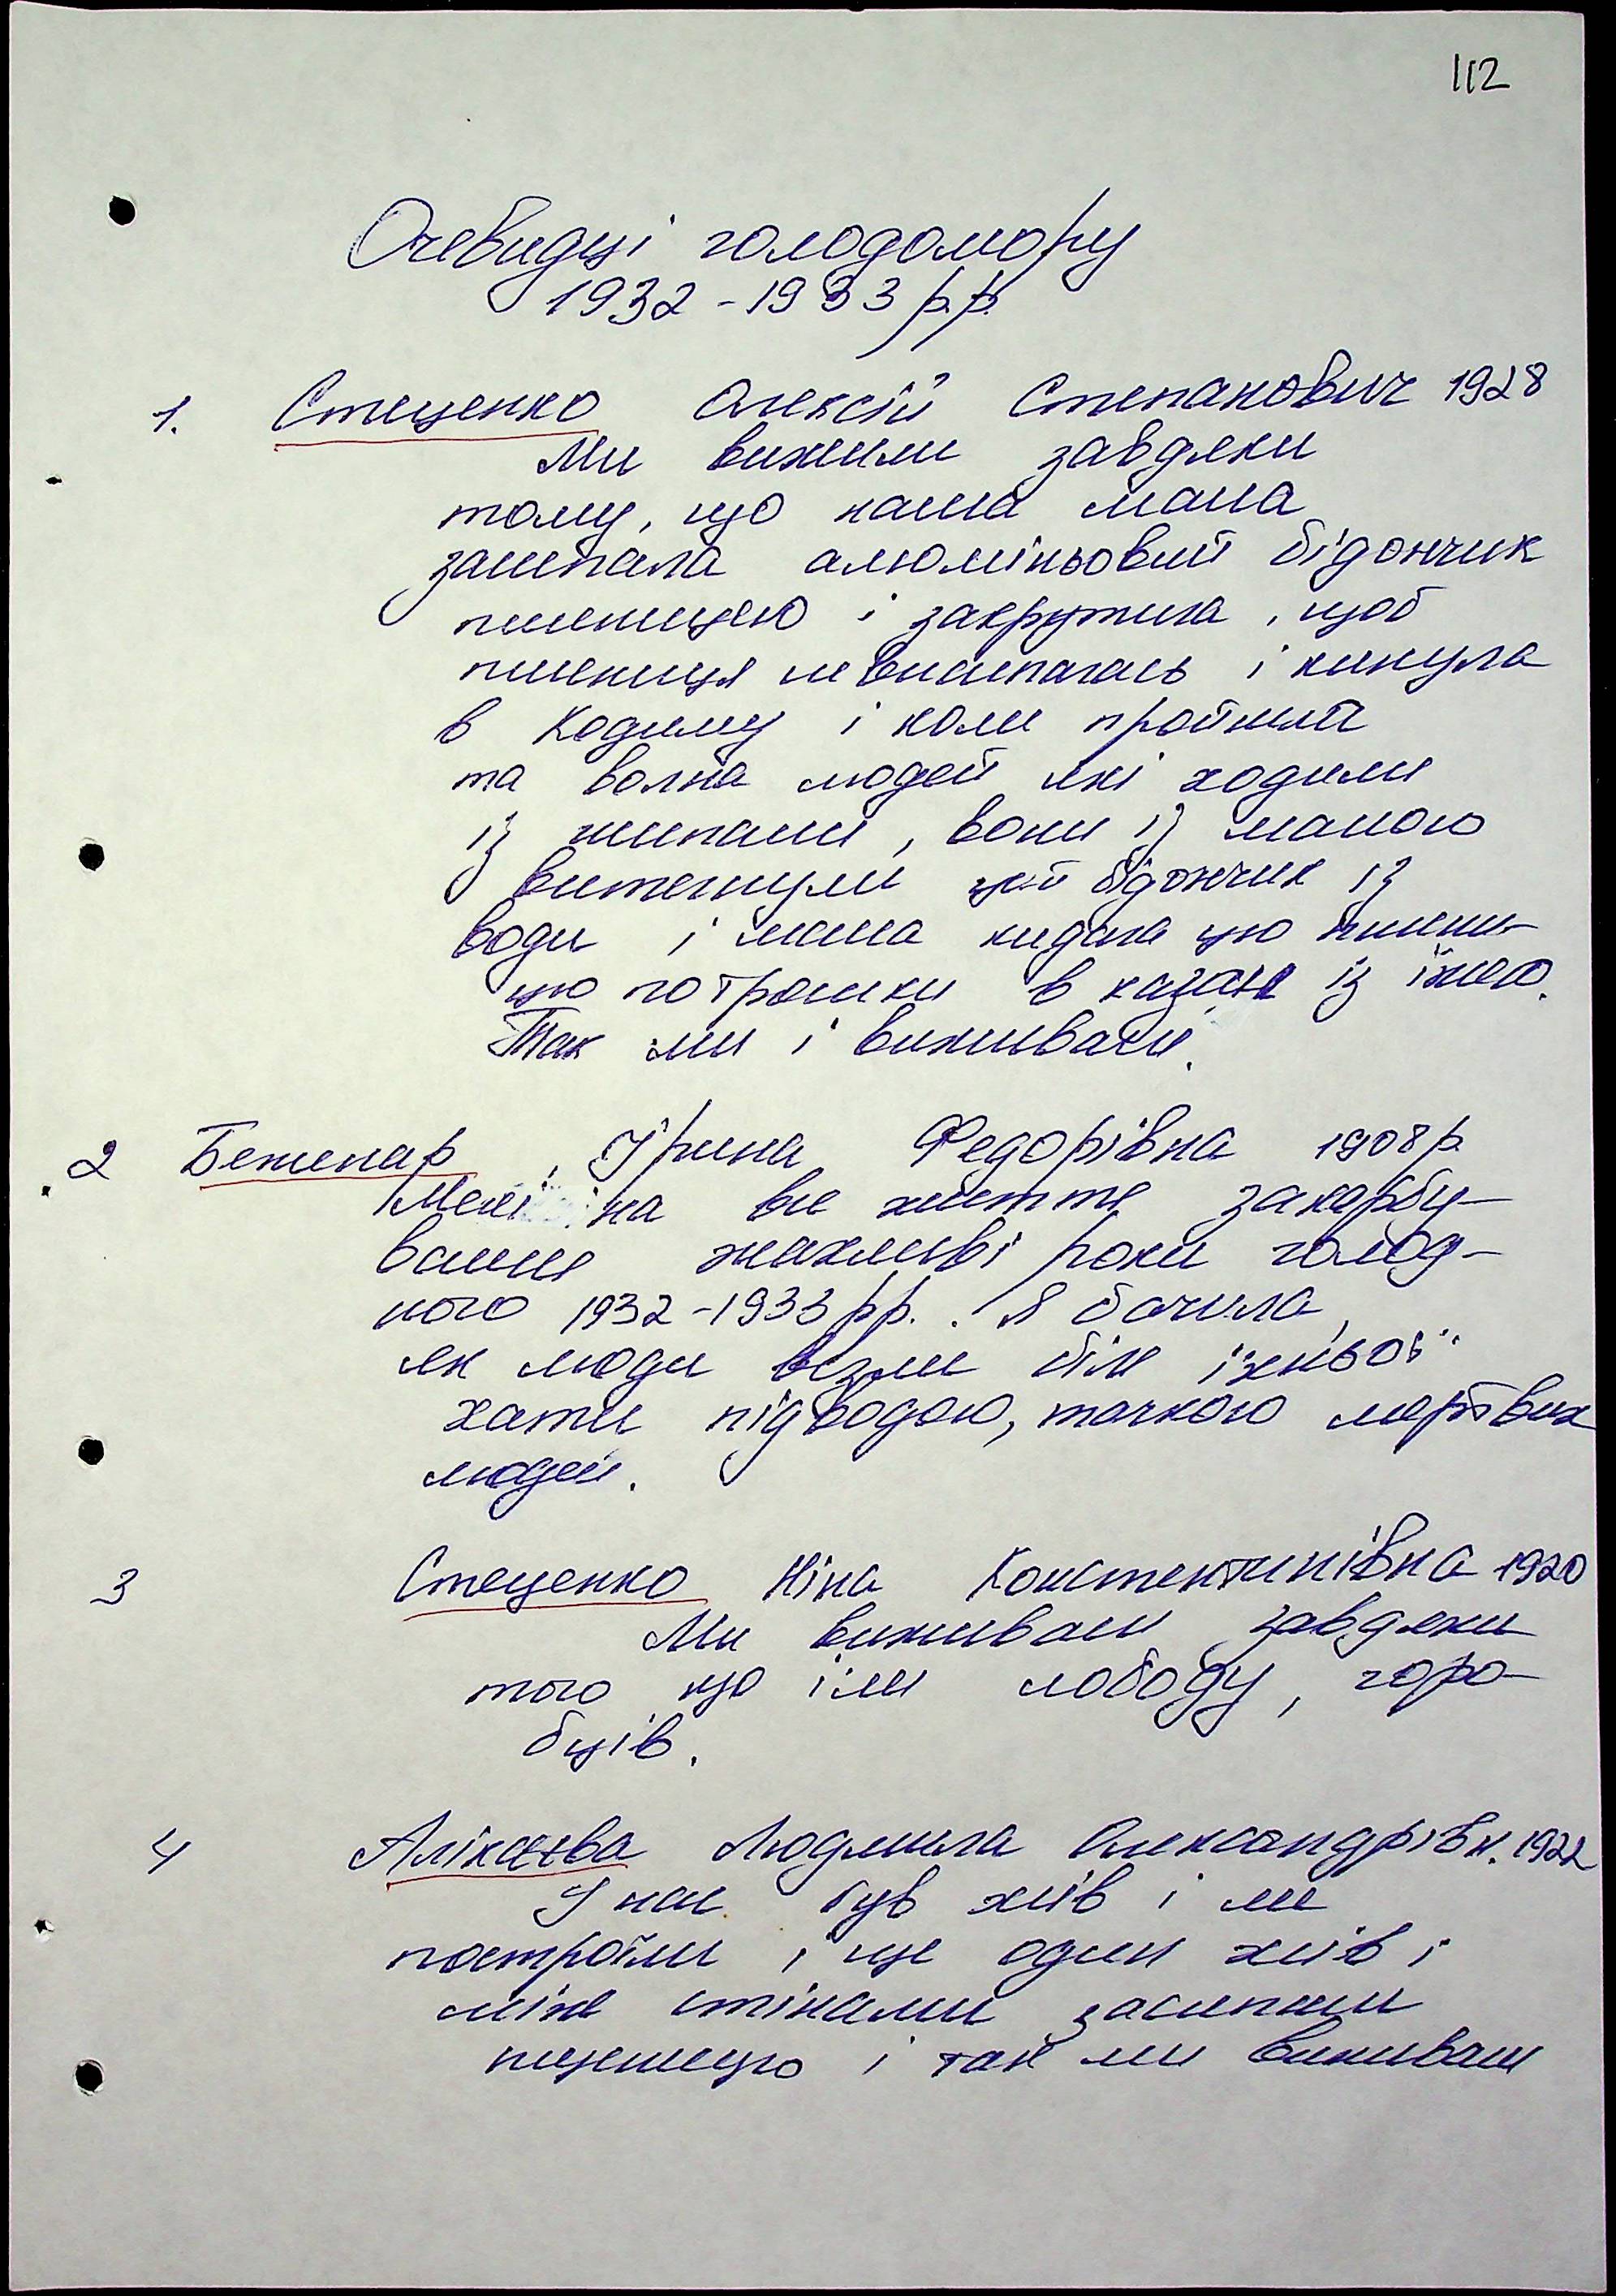 112
Очевидці голодомору
1932-1933 р.р.
1. Стеценко Олексій Степанович 1928
Ми вижили завдяки
тому, що наша мама
засипала алюміньовий бідончик
пшеницею і закрутила, щоб
пшениця не висипалась і кинула
в Кодиму і коли пройшла
та волна людей які ходили
із щупами, вони із мамою
витягнули цей бідончик із
води і мама кидала цю пшени-
цю потрошки в казан із їжею.
Так ми і виживали.
2 Бежепар Ірина Федорівна 1908р.
Мені на все життя закарбу-
вались жахливі роки голод-
ного 1932-1933 рр.. Я бачила,
як люди везли біля їхньої
хати підводою, тачкою мертвих
людей.
3 Стеценко Ніна Константинівна 1920
Ми виживали завдяки
того що їли лободу, горо-
бців.
4 Аліксєєва Людмила Олександрівн. 1922
У нас був хлів і ми
построїли і ще один хлів і
між стінами засипали
пшеницю і так ми виживали